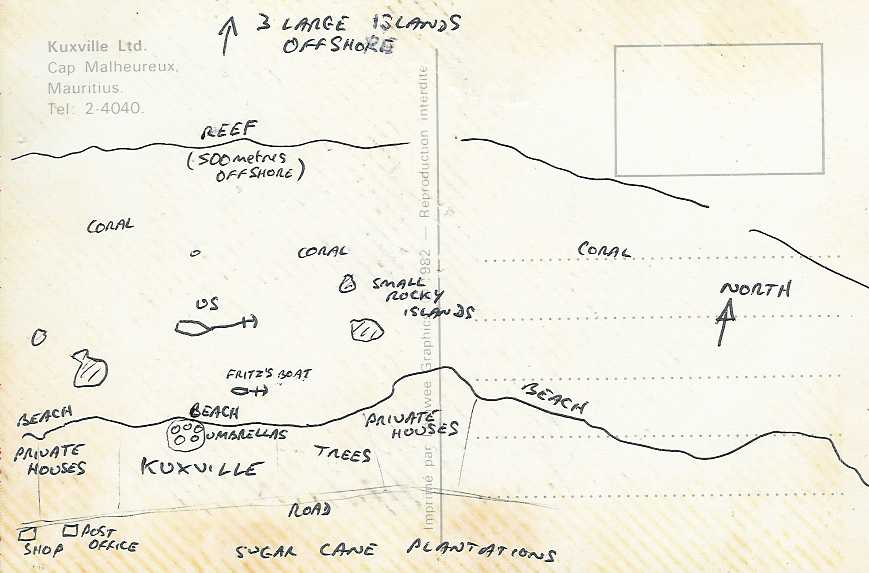 3 LARGE ISLANDS
OFFSHORE
Kuxville Ltd.
Cap Malheureux,
Mauritius.
Tel: 2-4040.
REEF
(500 metres
OFFSHORE)
CORAL
CORAL
CORAL
SMALL
ROCKY
ISLANDS
NORTH
US
FRITZ'S BOAT
BEACH
BEACH
BEACH
UMBRELLAS
PRIVATE
HOUSES
PRIVATE
HOUSES
KUXVILLE
TREES
ROAD
SHOP
POST
OFFICE
SUGAR CANE PLANTATIONS
Imprimé par
Graphic
1982 — Reproduction interdite